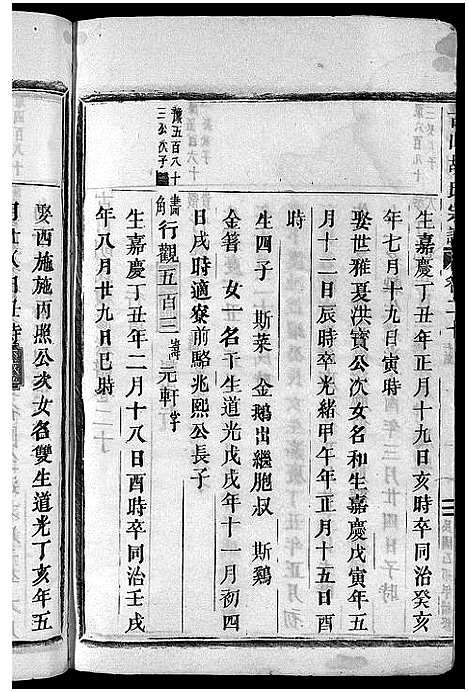 生嘉慶丁丑年正月十九日亥時卒同治癸亥
年七月十九日寅時
娶世雅夏洪寶公次女名和生嘉慶戊寅年五
月十二日辰時卒光緒甲午年正月十五日酉
時
生四子 斯萊 金鵝出繼胞叔 斯鷄
金箸 女一名于生道光戊戌年十一月初四
日戌時適寮前駱兆熙公長子
豫五百八十
三公次子
行觀五百三 元軒
生嘉慶丁丑年二月十八日酉時卒同治壬戌
年八月廿九日巳時
娶西施施丙照公次女名雙生道光丁亥年五